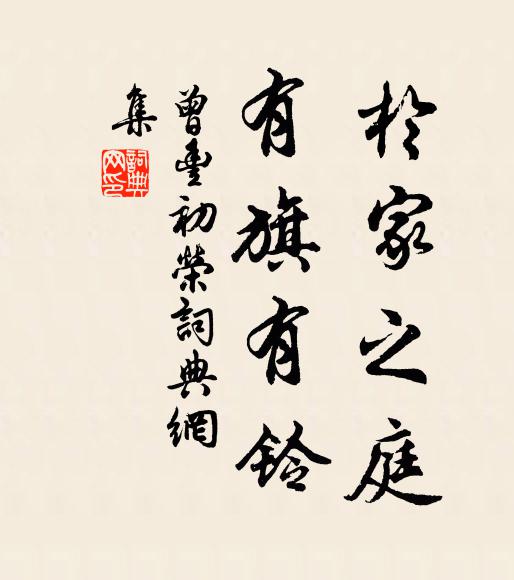 於家之庭
有旗有鈴
曾豐初榮詞典網
集
詞典網印